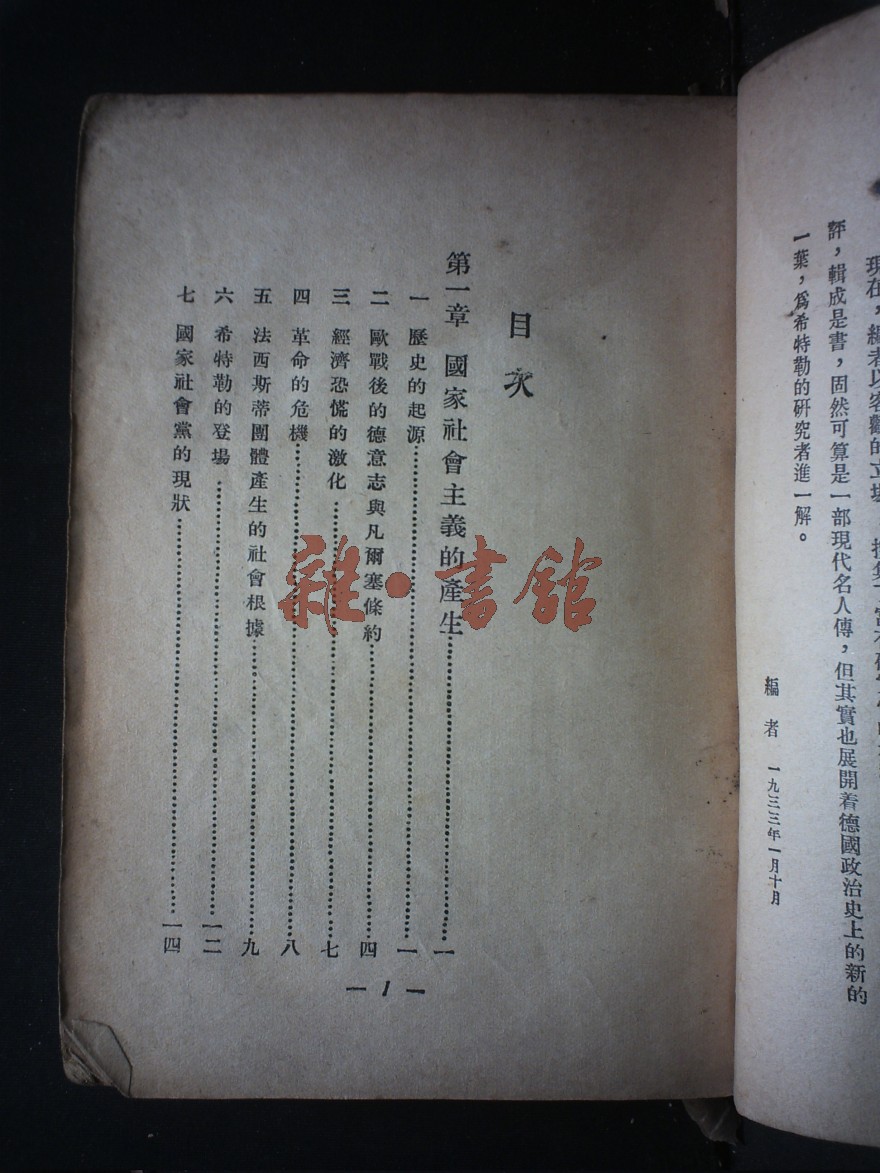 現在，編者以客觀的立場
評，輯成是書，固然可算是一部現代名人傳，但其實也展開着德國政治史上的新的
一葉，爲希特勒的研究者進一解。
編者 一九三三年一月十月
目次
第一章 國家社會主義的產生…………一
一 歷史的起源…………一
二 歐戰後的德意志與凡爾塞條約…………四
三 經濟恐慌的激化…………七
四 革命的危機…………八
五 法西斯蒂團體產生的社會根據…………九
六 希特勒的登場…………一二
七 國家社會黨的現狀…………一四
— 1 —
雜·書館